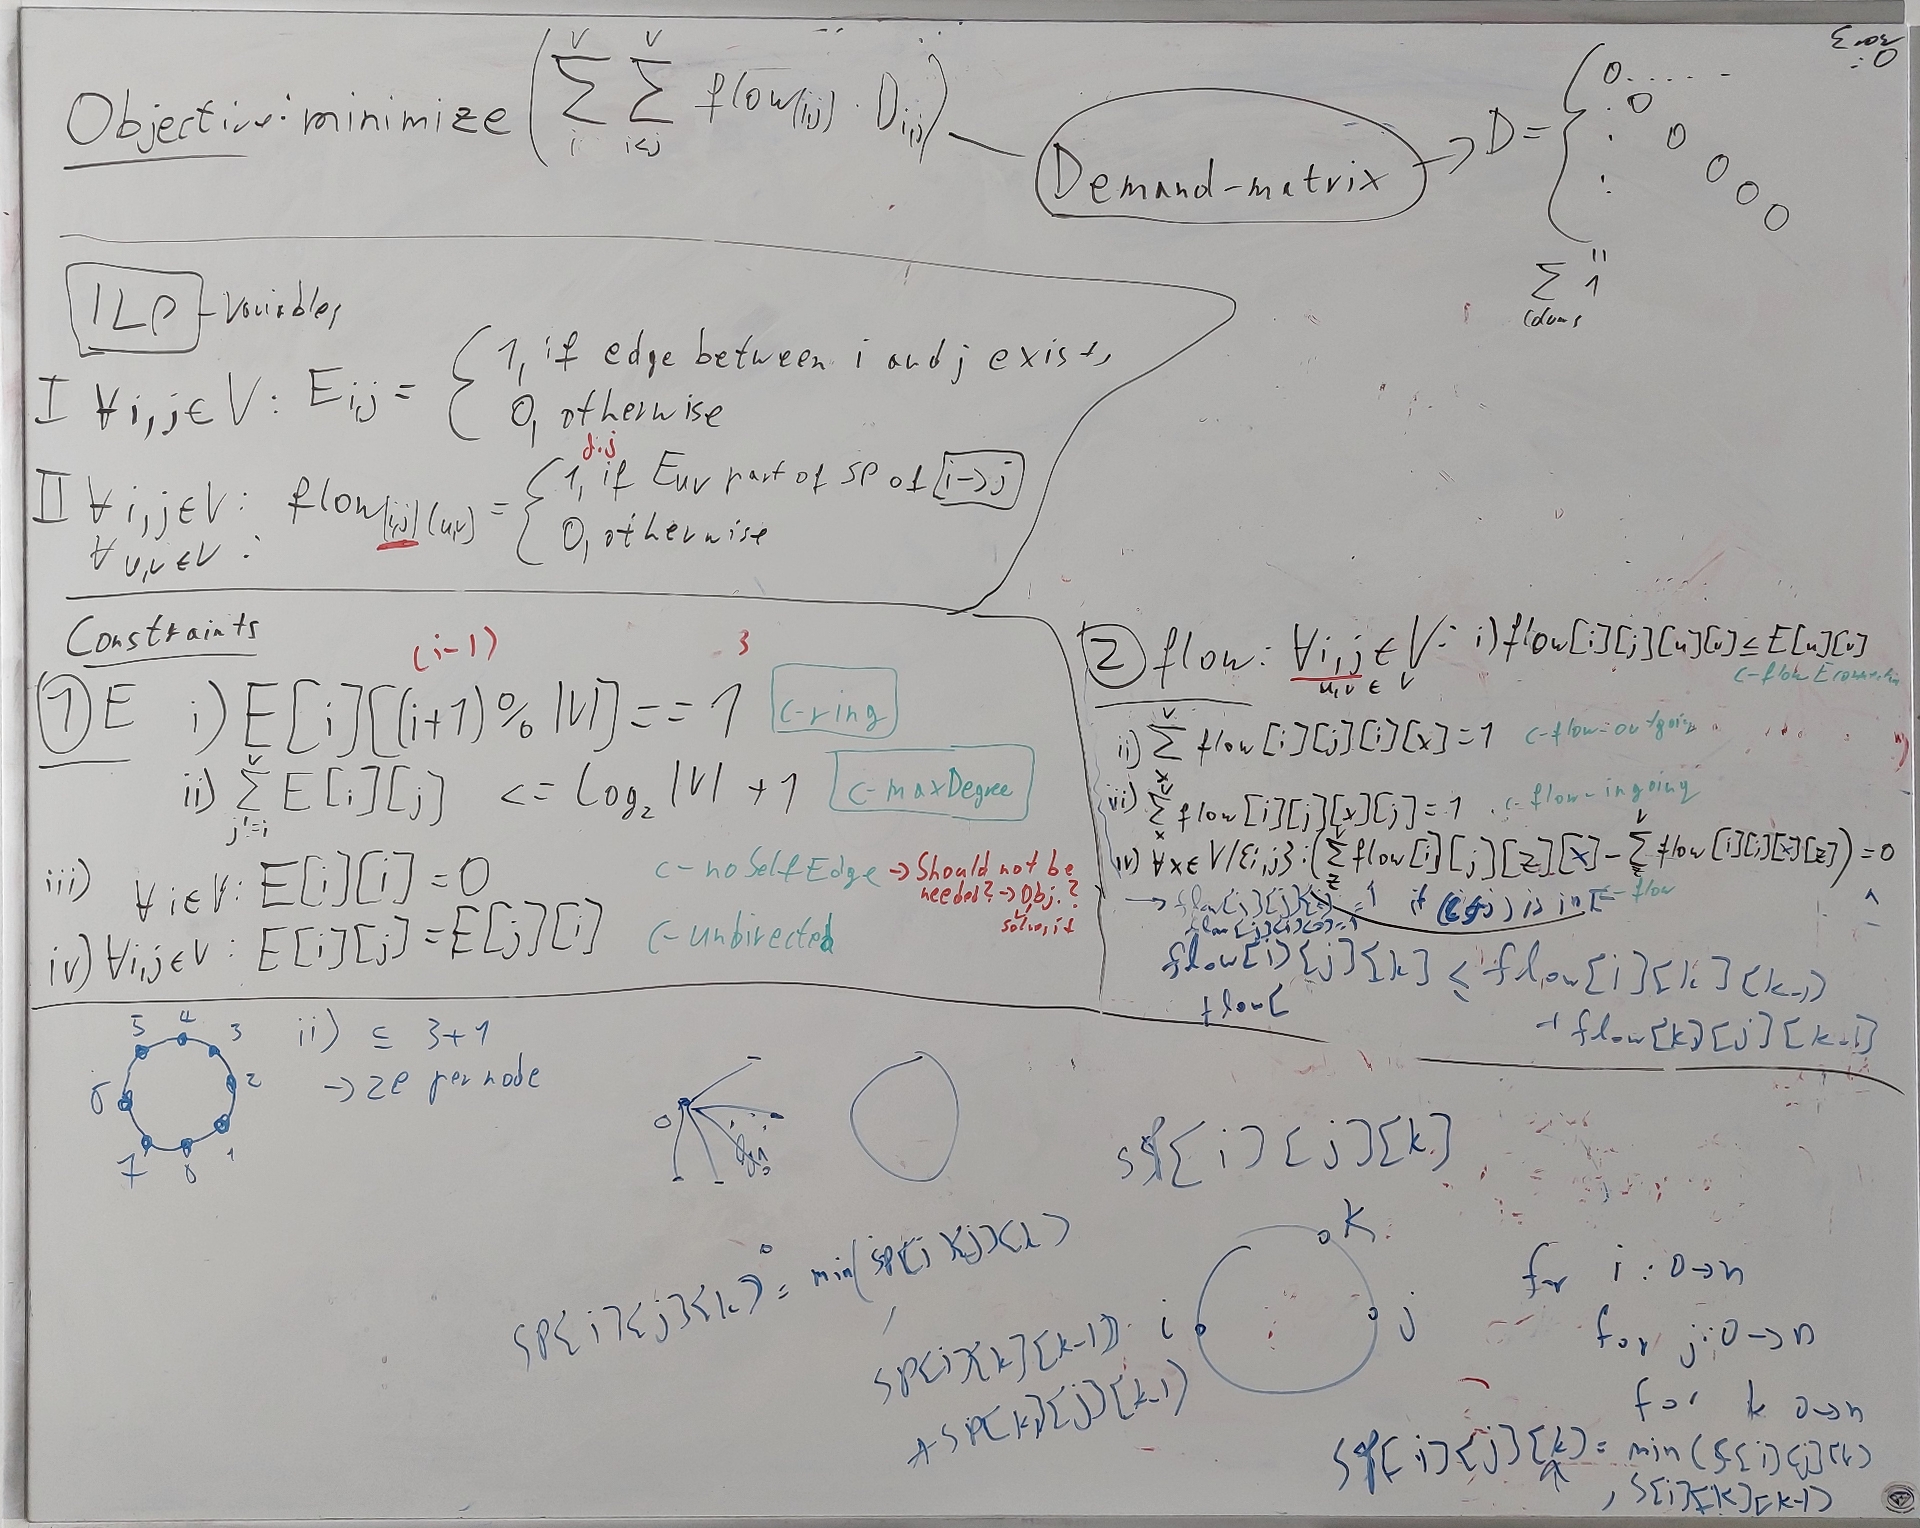 Objective: minimize ( V Σ i V Σ i<j flow(i,j) · D i,j )
Demand-matrix → D = { 0 . . . . .
0
0
0
0
0
Σ 1
ILP - Variables
I ∀ i,j ∈ V : E i,j = { 1, if edge between i and j exists,
0, otherwise
II ∀ i,j ∈ V : flow [i,j] (u,v) = { 1, if E uv part of SP of i→j
∀ u,v ∈ V : 0, otherwise
Constraints
(i-1) 3
① E i) E[i][(i+1) % |V|] == 1 c-ring
ii) V Σ E[i][j] <= log₂ |V| + 1 c-maxDegree
iii) ∀ i ∈ V : E[i][i] = 0 c-noSelfEdge → Should not be
needed? → Obj.?
iv) ∀ i,j ∈ V : E[i][j] = E[j][i] c-undirected
② flow : ∀ i,j ∈ V : i) flow[i][j][u][v] ≤ E[u][v]
u,v ∈ V
ii) V Σ x flow[i][j][i][x] = 1 c-flow-outgoing
iii) V Σ x flow[i][j][x][j] = 1 c-flow-ingoing
iv) ∀ x ∈ V/{i,j} : ( V Σ z flow[i][j][z][x] - V Σ z flow[i][j][x][z] ) = 0
c-flow
flow[i][j][k] ≤ flow[i][k][k-1]
flow[
+ flow[k][j][k-1]
5 4 3
6 2
7 0 1
ii) ≤ 3+1
→ 2e per node
0
sp[i][j][k]
SP[i][j][k] = min(SP[i][j][k]
,
SP[i][k][k-1]
+ SP[k][j][k-1]
i k j
for i : 0→n
for j : 0→n
for k 0→n
sp[i][j][k] = min(S[i][j][k]
, S[i][k][k-1]